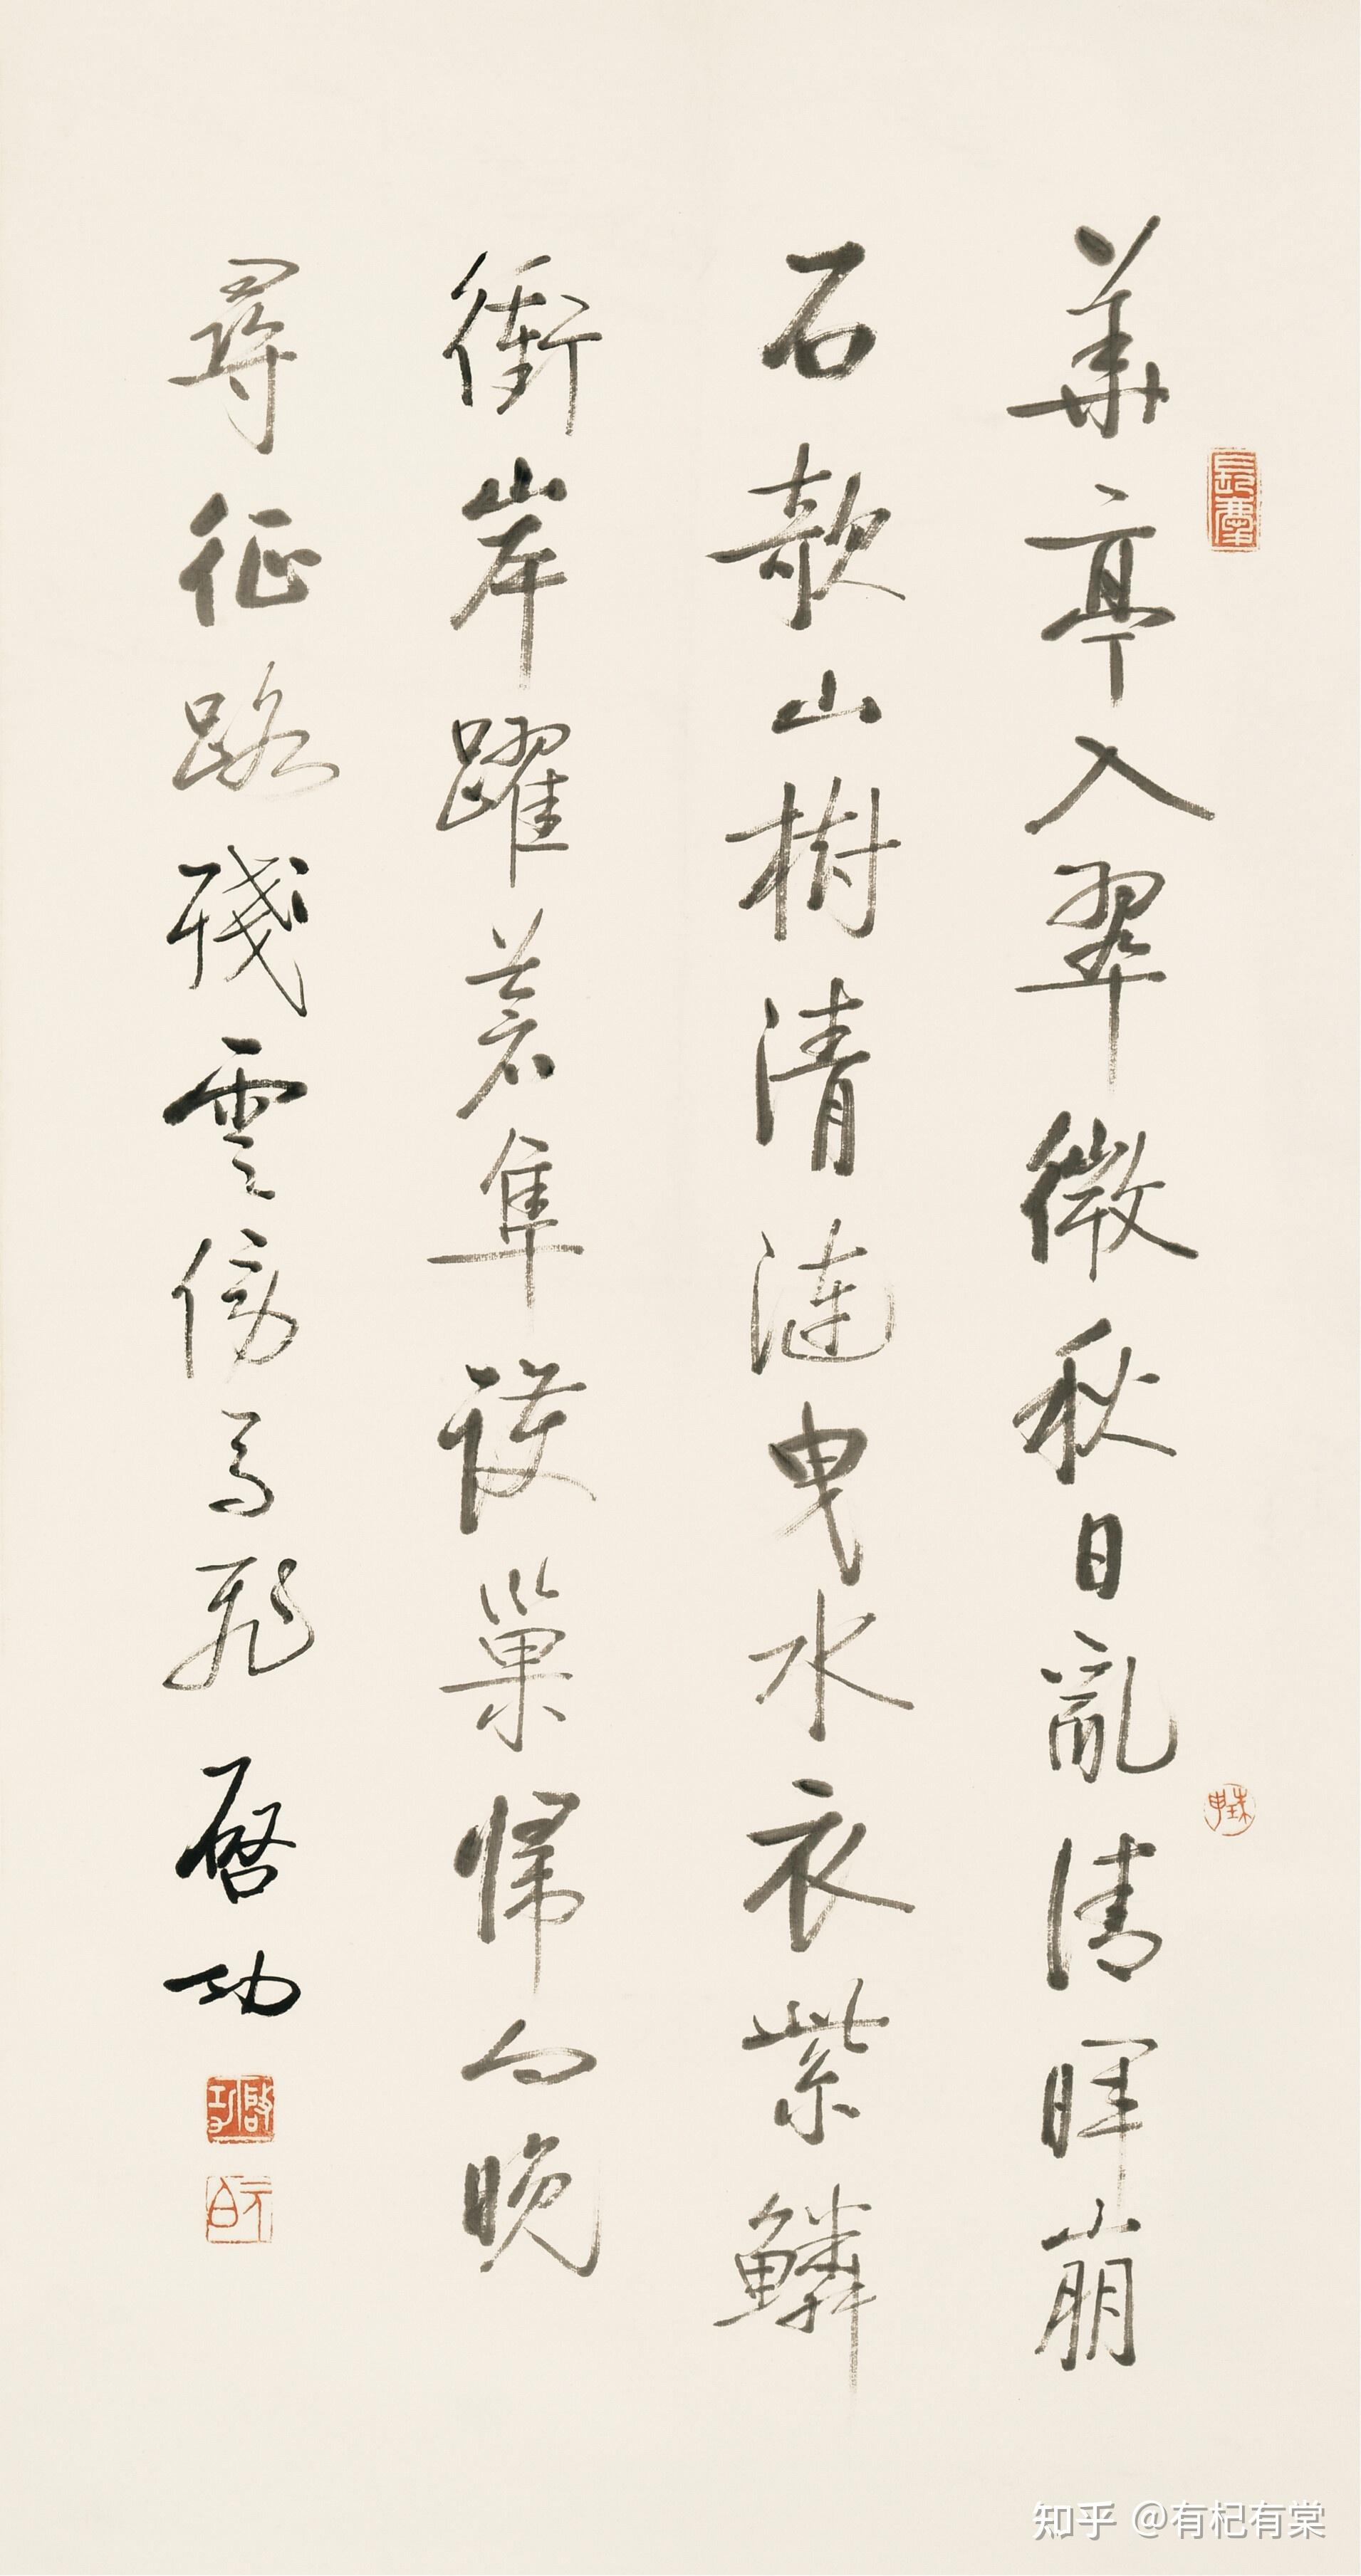 華亭入翠微秋日亂清暉崩
石欹山樹清漣曳水衣紫鱗
衝岸躍蒼隼護巢歸向晚
尋征路殘雲傍馬飛 啓功
啓功
元白
珠申
知乎 @有杞有棠